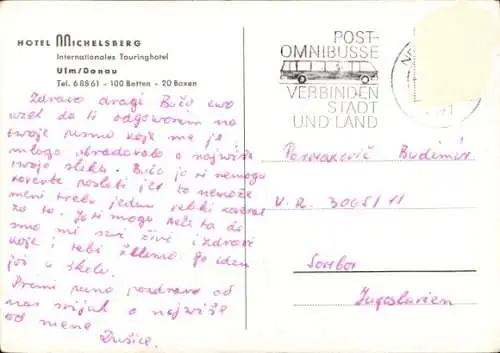 HOTEL MICHELSBERG
Internationales Touringhotel
Ulm/Donau
Tel. 68861 - 100 Betten - 20 Boxen
POST-
OMNIBUSSE
VERBINDEN
STADT
UND LAND
Zdravo dragi Bućo evo
uzeh da ti odgovorim na
tvoje pismo koje me je
mlogo obradovalo a najviše
tvoja slika. Bućo ja ti nemogu
poslati jer to nemože
meni treba jedan veliki
za to. Ja ti mogu reći ta da
smo mi svi živi i zdravi
koje i tebi želemo. Ja idem
još u školu.
Primi puno pozdrava od
nas svijuh a najviše
od mene
Dušica.
Budimir
V.R. 3065/11
Sombor
Jugoslavien